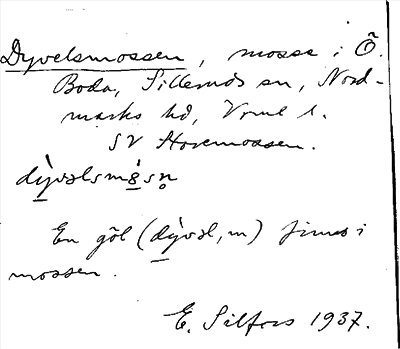 Dyvelsmossen, mosse i Ö.
Boda, Silleruds sn, Nord-
marks hd, Vrml l.
SV Hovemossen.
dỳvəlsmə̀sn̥
En göl (dỳvəl, m) finns i
mossen.
E. Silfors 1937.